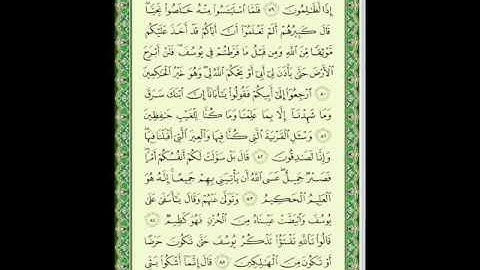 إِذًا لَّظَالِمُونَ ٧٩ فَلَمَّا اسْتَيْأَسُوا مِنْهُ خَلَصُوا نَجِيًّا
قَالَ كَبِيرُهُمْ أَلَمْ تَعْلَمُوا أَنَّ أَبَاكُمْ قَدْ أَخَذَ عَلَيْكُم
مَّوْثِقًا مِّنَ اللَّهِ وَمِن قَبْلُ مَا فَرَّطتُمْ فِي يُوسُفَ فَلَنْ أَبْرَحَ
الْأَرْضَ حَتَّىٰ يَأْذَنَ لِي أَبِي أَوْ يَحْكُمَ اللَّهُ لِي وَهُوَ خَيْرُ الْحَاكِمِينَ
٨٠ ارْجِعُوا إِلَىٰ أَبِيكُمْ فَقُولُوا يَا أَبَانَا إِنَّ ابْنَكَ سَرَقَ
وَمَا شَهِدْنَا إِلَّا بِمَا عَلِمْنَا وَمَا كُنَّا لِلْغَيْبِ حَافِظِينَ
٨١ وَسْئَلِ الْقَرْيَةَ الَّتِي كُنَّا فِيهَا وَالْعِيرَ الَّتِي أَقْبَلْنَا فِيهَا
وَإِنَّا لَصَادِقُونَ ٨٢ قَالَ بَلْ سَوَّلَتْ لَكُمْ أَنفُسُكُمْ أَمْرًا
فَصَبْرٌ جَمِيلٌ عَسَى اللَّهُ أَن يَأْتِيَنِي بِهِمْ جَمِيعًا إِنَّهُ هُوَ
الْعَلِيمُ الْحَكِيمُ ٨٣ وَتَوَلَّىٰ عَنْهُمْ وَقَالَ يَا أَسَفَىٰ عَلَىٰ
يُوسُفَ وَابْيَضَّتْ عَيْنَاهُ مِنَ الْحُزْنِ فَهُوَ كَظِيمٌ ٨٤
قَالُوا تَاللَّهِ تَفْتَأُ تَذْكُرُ يُوسُفَ حَتَّىٰ تَكُونَ حَرَضًا
أَوْ تَكُونَ مِنَ الْهَالِكِينَ ٨٥ قَالَ إِنَّمَا أَشْكُو بَثِّي